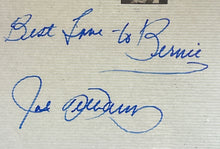 Best Love to Bernie
Joe Williams